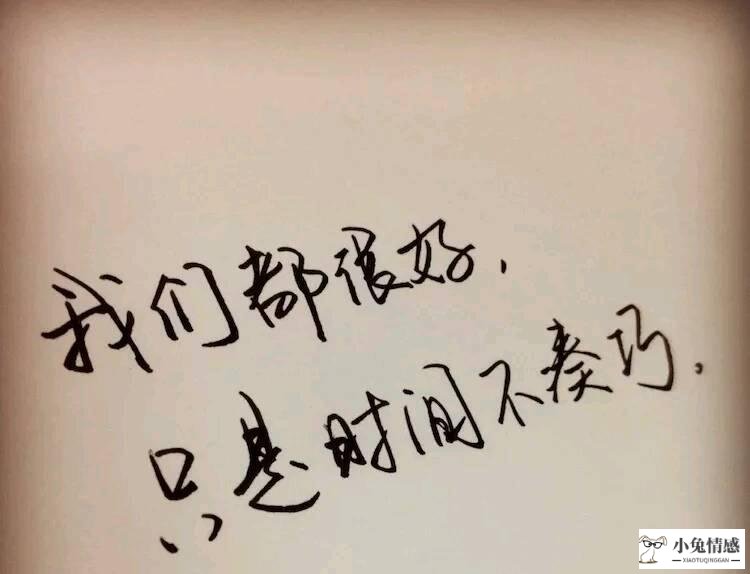 我们都很好.
只是时间不凑巧.
小兔情感
XIAOTUQINGGAN